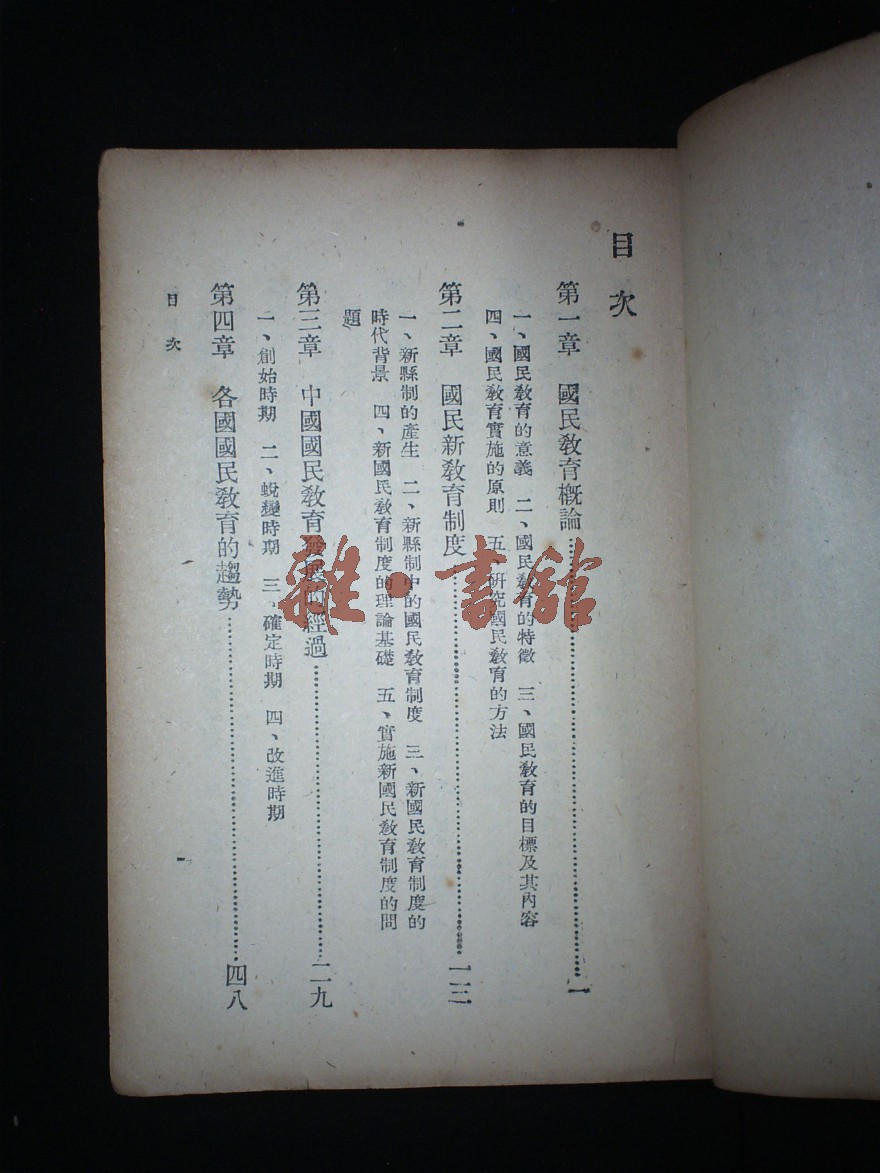 目次
第一章 國民敎育概論……一
一、國民敎育的意義 二、國民敎育的特徵 三、國民敎育的目標及其內容
四、國民敎育實施的原則 五、硏究國民敎育的方法
第二章 國民新敎育制度……一三
一、新縣制的產生 二、新縣制中的國民敎育制度 三、新國民敎育制度的
時代背景 四、新國民敎育制度的理論基礎 五、實施新國民敎育制度的問
題
第三章 中國國民敎育發展的經過……二九
一、創始時期 二、蛻變時期 三、確定時期 四、改進時期
第四章 各國國民敎育的趨勢……四八
目次
雜·書館